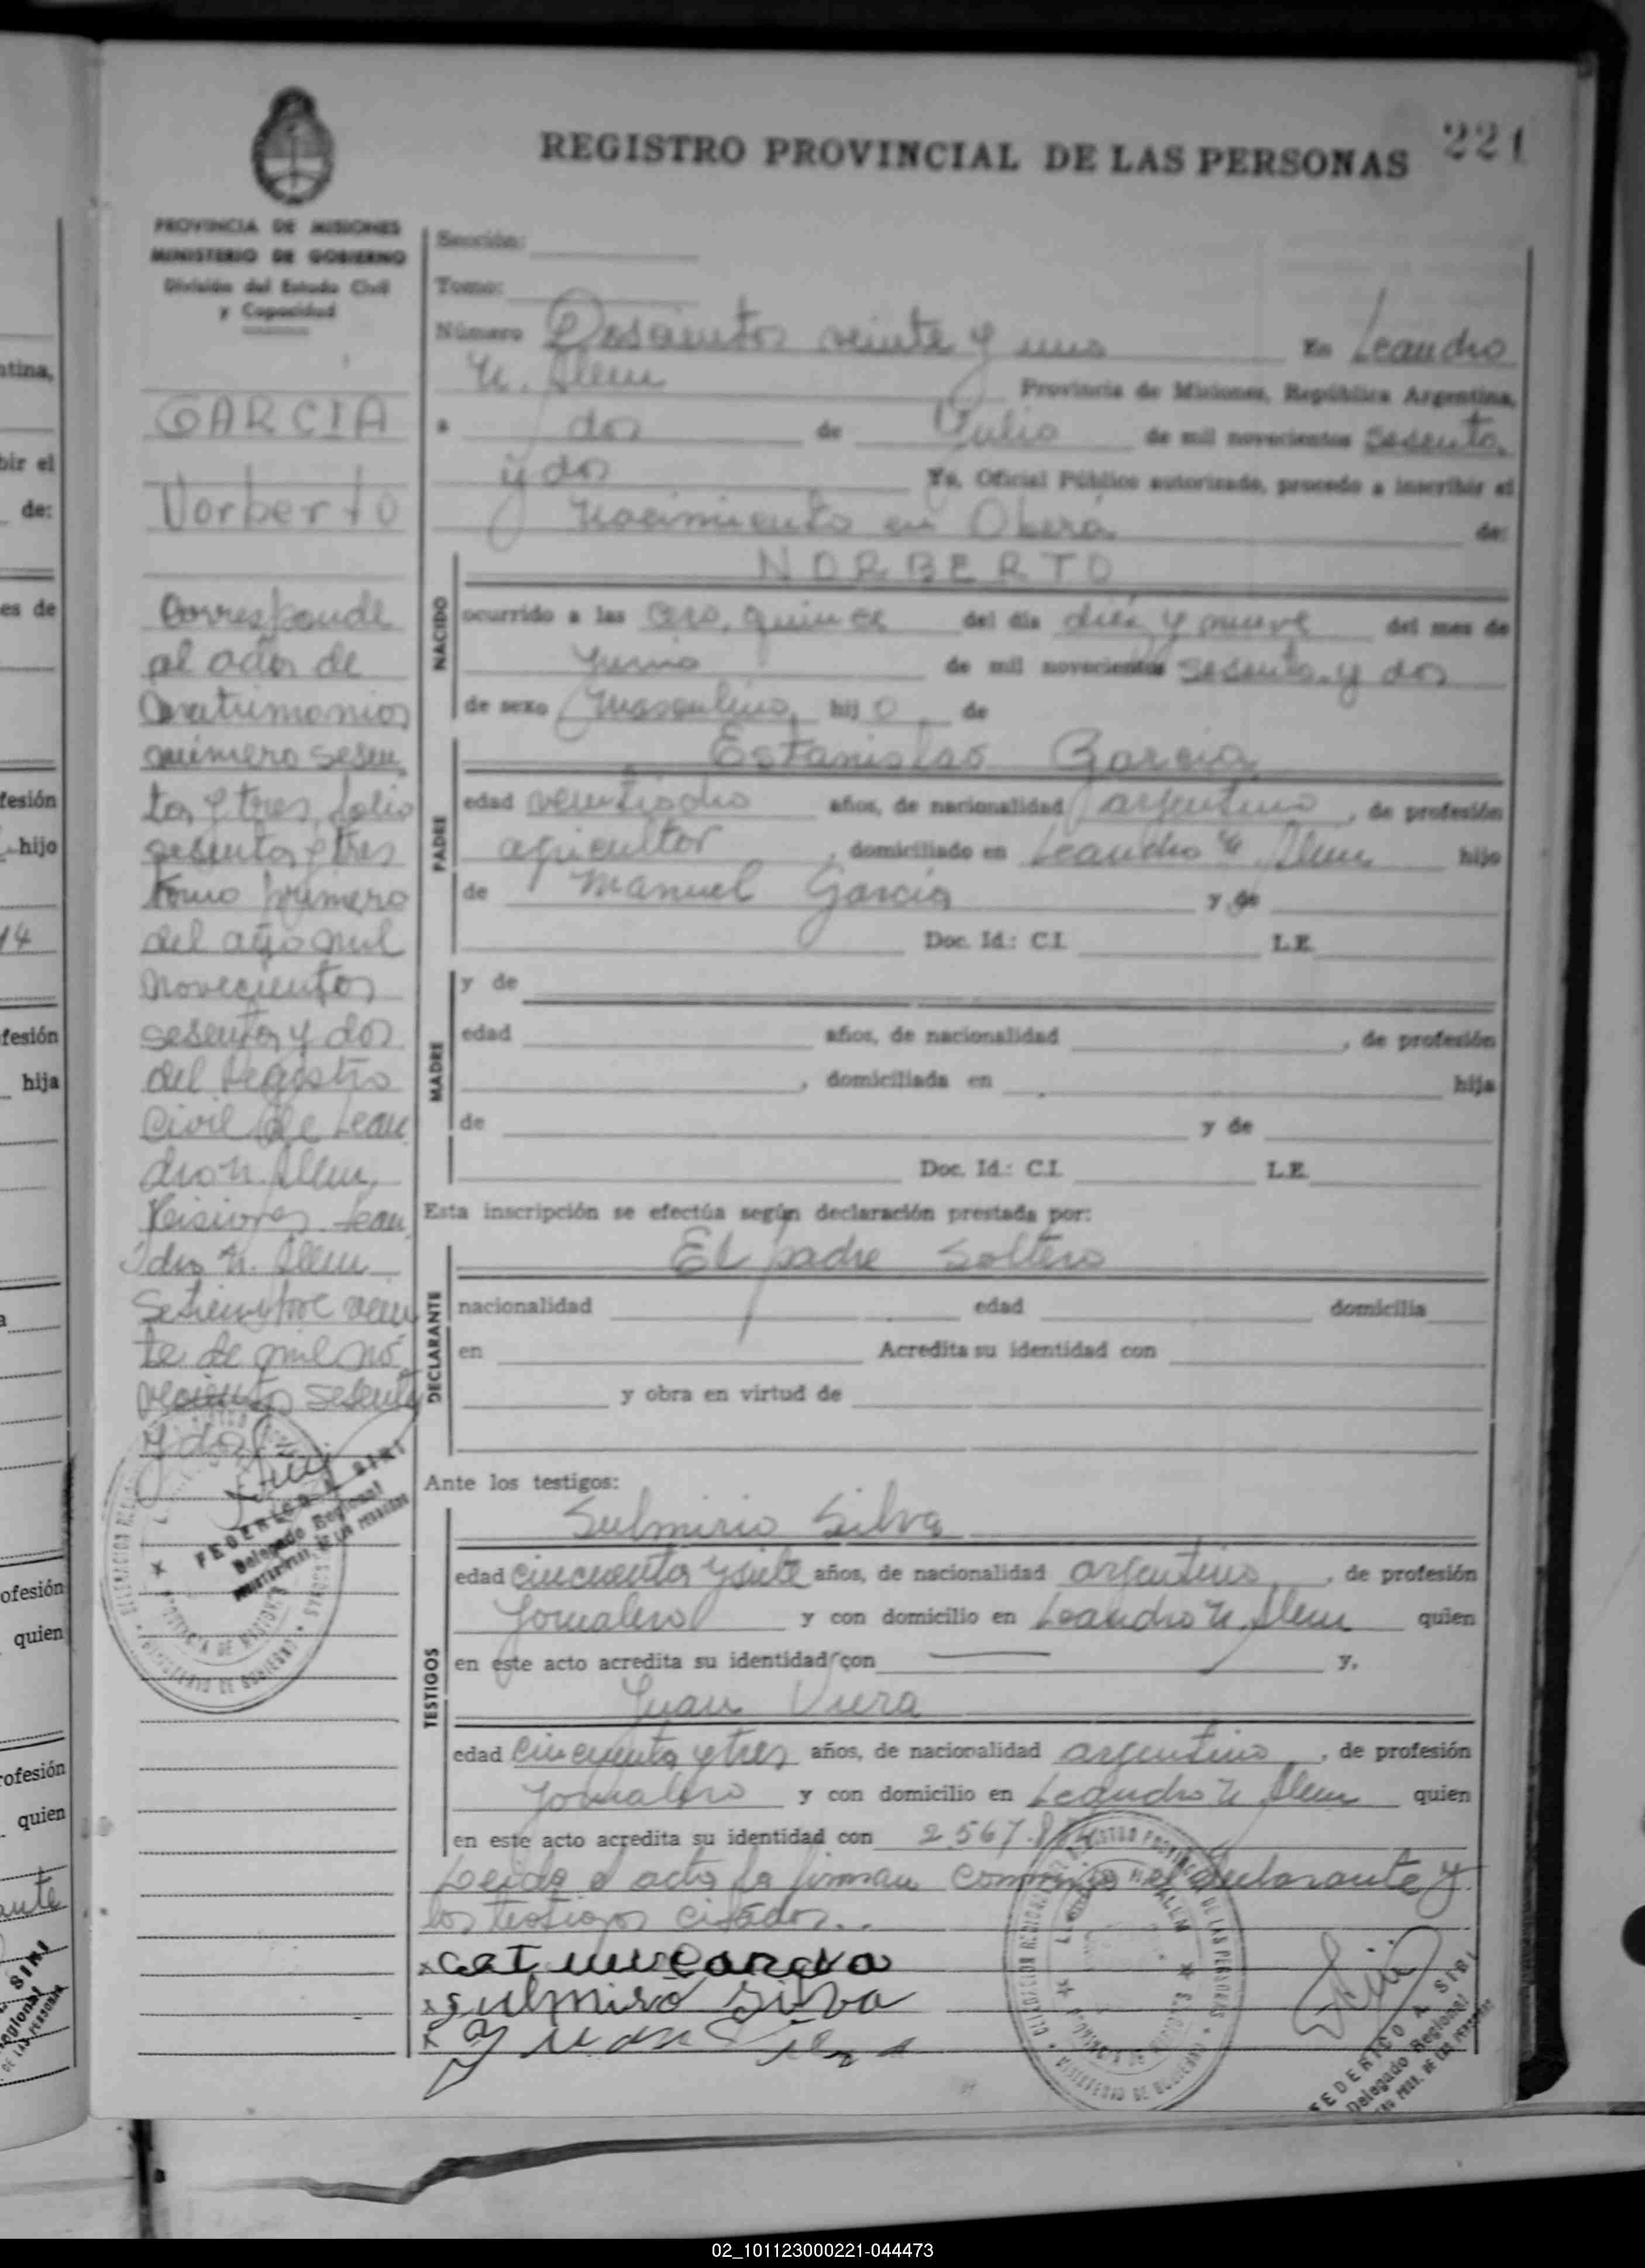 221
REGISTRO PROVINCIAL DE LAS PERSONAS
PROVINCIA DE MISIONES
MINISTERIO DE GOBIERNO
División del Estado Civil
y Capacidad
GARCIA
Norberto
Corresponde
al acta de
Matrimonios
número sesen
ta y tres, folio
sesenta y tres
tomo primero
del año mil
novecientos
sesenta y dos
del Registro
Civil de Lean
dro N. Alem,
Misiones. Lean
dro N. Alem
Setiembre vein
te de mil no
vecientos sesenta
y dos
FEDERICO A. SIRI
Delegado Regional
Sección:
Tomo:
Número Doscientos veinte y uno En Leandro
N. Alem Provincia de Misiones, República Argentina,
a dos de Julio de mil novecientos sesenta
y dos Yo, Oficial Público autorizado, procedo a inscribir el
Nacimiento en Oberá de:
NORBERTO
NACIDO
ocurrido a las cero, quince del día diez y nueve del mes de
Junio de mil novecientos sesenta y dos
de sexo Masculino hijo de
Estanislao Garcia
PADRE
edad veintiocho años, de nacionalidad argentino, de profesión
agricultor, domiciliado en Leandro N. Alem hijo
de Manuel García y de
Doc. Id.: C.I. L.E.
MADRE
y de
edad años, de nacionalidad , de profesión
, domiciliada en hija
de y de
Doc. Id.: C.I. L.E.
Esta inscripción se efectúa según declaración prestada por:
El padre Soltero
DECLARANTE
nacionalidad edad domicilia
en Acredita su identidad con
y obra en virtud de
Ante los testigos:
Sulmirio Silva
TESTIGOS
edad cincuenta y siete años, de nacionalidad argentino, de profesión
Jornalero y con domicilio en Leandro N. Alem quien
en este acto acredita su identidad con y,
Juan Viera
edad cincuenta y tres años, de nacionalidad argentino, de profesión
Jornalero y con domicilio en Leandro N. Alem quien
en este acto acredita su identidad con 2.567.
Leida el acta la firman conmigo el declarante y
los testigos citados..
Sulmiro Silva
Juan Viera
FEDERICO A. SIRI
Delegado Regional
02_101123000221-044473